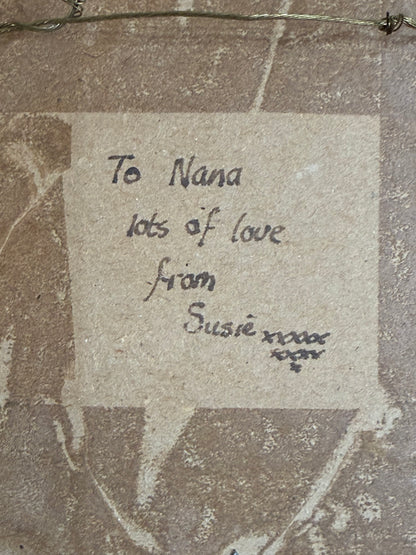 To Nana
lots of love
from
Susie xxxxx
xxxx
x